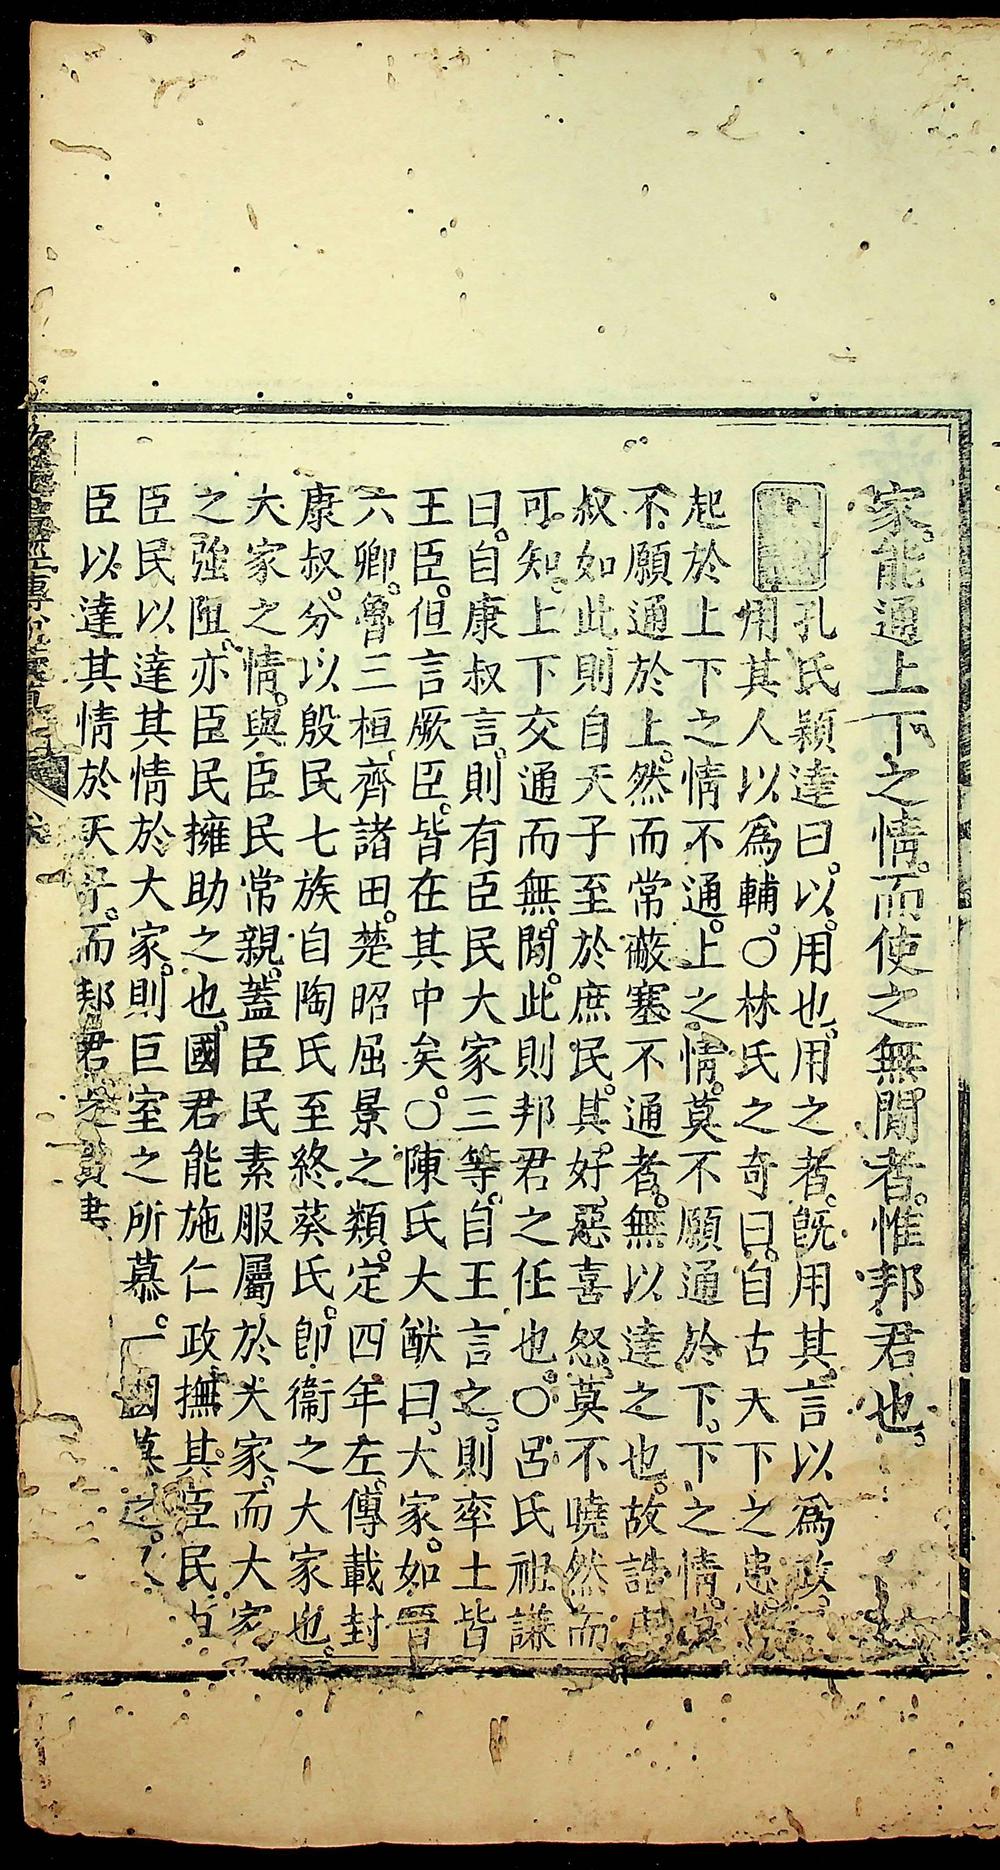 家。能通上下之情。而使之無閒者。惟邦君也。
孔氏穎達曰。以。用也。用之者。旣用其言以爲政。
用其人以爲輔。○林氏之奇曰。自古天下之患。
起於上下之情不通。上之情。莫不願通於下。下之情。莫
不願通於上。然而常蔽塞不通者。無以達之也。故誥
叔如此則自天子至於庶民。其好惡喜怒莫不曉然而
可知。上下交通而無閒。此則邦君之任也。○呂氏祖謙
曰。自康叔言。則有臣民大家三等。自王言之。則率土皆
王臣。但言厥臣。皆在其中矣。○陳氏大猷曰。大家。如晉
六卿。魯三桓。齊諸田。楚昭屈景之類。定四年左傳載封
康叔。分以殷民七族自陶氏至終葵氏。卽衞之大家也。
大家之情。與臣民常親。蓋臣民素服屬於大家。而大家
之強阻。亦臣民擁助之也。國君能施仁政撫其臣民
臣民以達其情於大家。則巨室之所慕。一國慕之。
臣以達其情於天子。而邦君之責